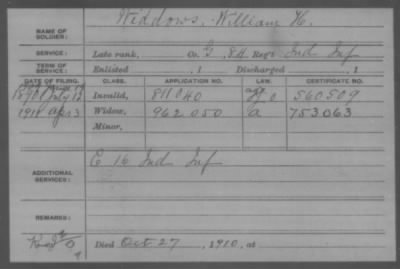 NAME OF SOLDIER: Widdows, William H.
SERVICE: Late rank, Co. G, 84 Reg't Ind Inf
TERM OF SERVICE: Enlisted , 1 Discharged , 1
DATE OF FILING. CLASS. APPLICATION NO. LAW. CERTIFICATE NO.
1890 July 12 Invalid, 811040 560509
1911 Apr 3 Widow, 962050 a 753063
Minor,
ADDITIONAL SERVICES: C 16 Ind Inf
REMARKS:
Died Oct 27, 1910, at